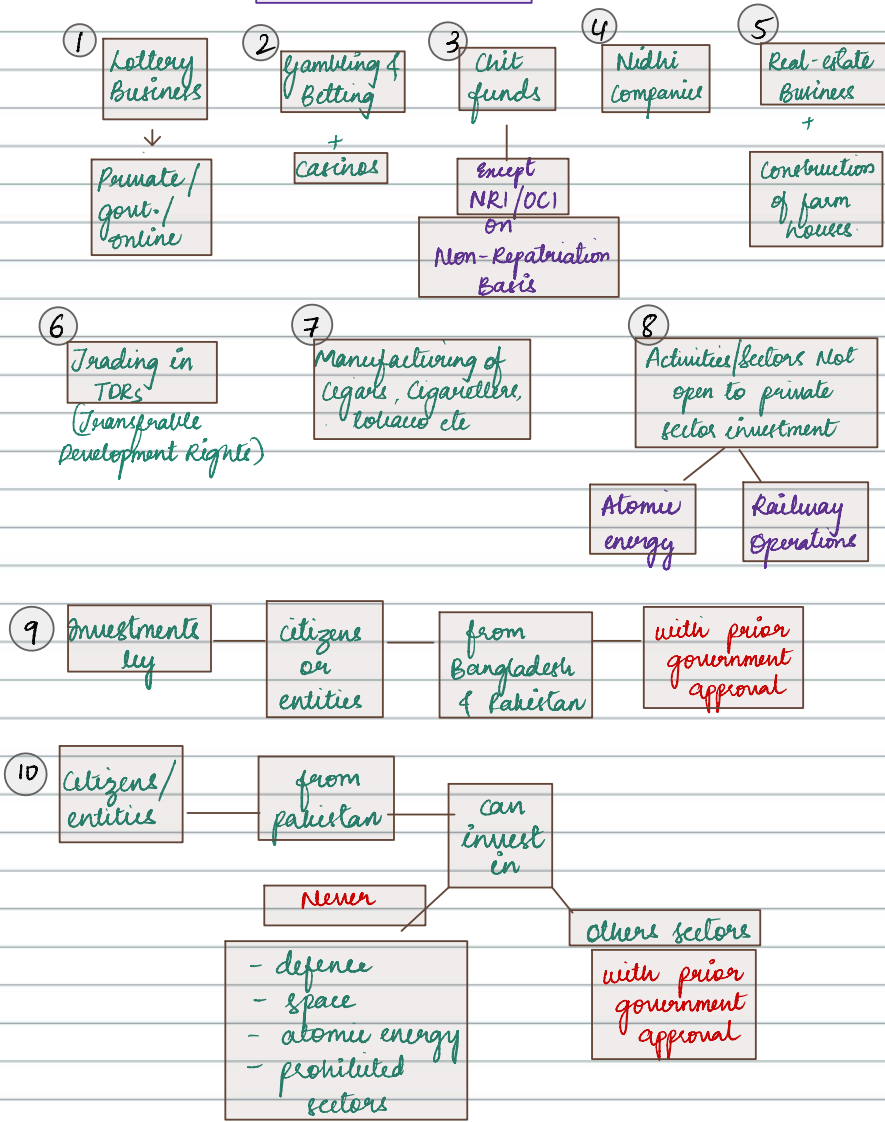 1
Lottery
Business
Private/
govt./
online
2
Gambling &
Betting
+
Casinos
3
Chit
funds
Except
NRI/OCI
on
Non-Repatriation
Basis
4
Nidhi
Companies
5
Real-estate
Business
+
Construction
of farm
houses
6
Trading in
TDRs
(Transferable
Development Rights)
7
Manufacturing of
Cigars, Cigarettes,
tobacco etc
8
Activities/Sectors Not
open to private
sector investment
Atomic
energy
Railway
Operations
9
Investments
by
citizens
or
entities
from
Bangladesh
& Pakistan
with prior
government
approval
10
Citizens/
entities
from
pakistan
can
invest
in
Never
- defence
- space
- atomic energy
- prohibited
sectors
others sectors
with prior
government
approval